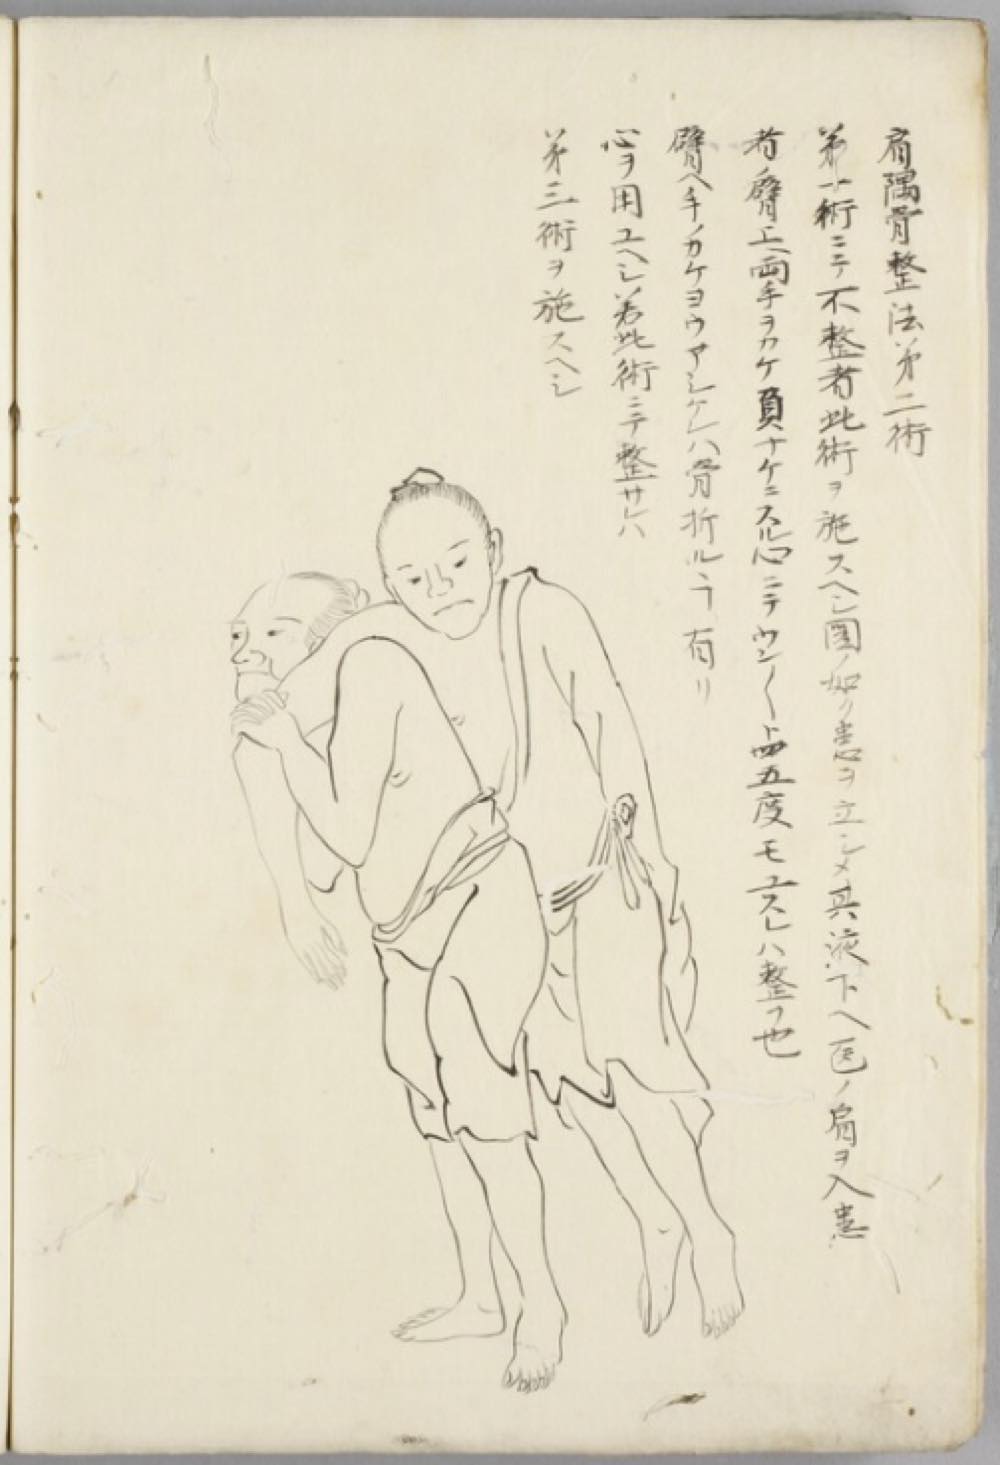 肩隅骨整法第二術
第一術ニテ不整者此術ヲ施スヘシ圖ノ如ク患ヲ立シメ其液下ヘ医ノ肩ヲ入患
者ノ臂上両手ヲカケ負ナケニスル心ニテウン〱ト四五度モユスレハ整フ也
臂ヘ手ノカケヨウアシケレハ骨折ルヿ有リ
心ヲ用ユヘシ若此術ニテ整サレハ
第三術ヲ施スヘシ